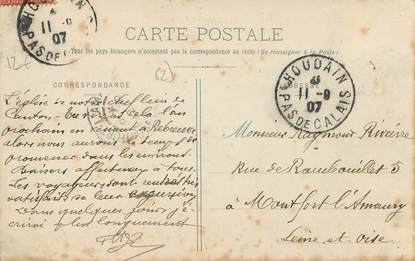 HOUDAIN
11 -9
07
PAS DE CALAIS
CARTE POSTALE
Tous les pays étrangers n'acceptent pas la correspondance au recto (Se renseigner à la Poste)
CORRESPONDANCE
L'église de notre chef lieu de
Canton. Tu cela l'an
prochain en venant à Rebreuve
alors nous aurons le temps de
promener dans les environs
affectueux à tous.
Les voyageurs sont très
satisfaits de leur excursion
Dans quelques jours j'é-
crirai plus longuement
62
HOUDAIN
11 -9
07
PAS DE CALAIS
Monsieur Raymond Rivière
Rue de Rambouillet 5
à Montfort l'Amaury
Seine et Oise